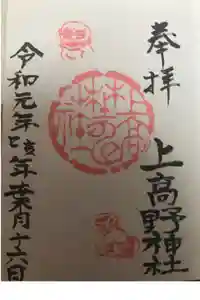 奉拝
上高野神社
令和元年亥年葉月十六日